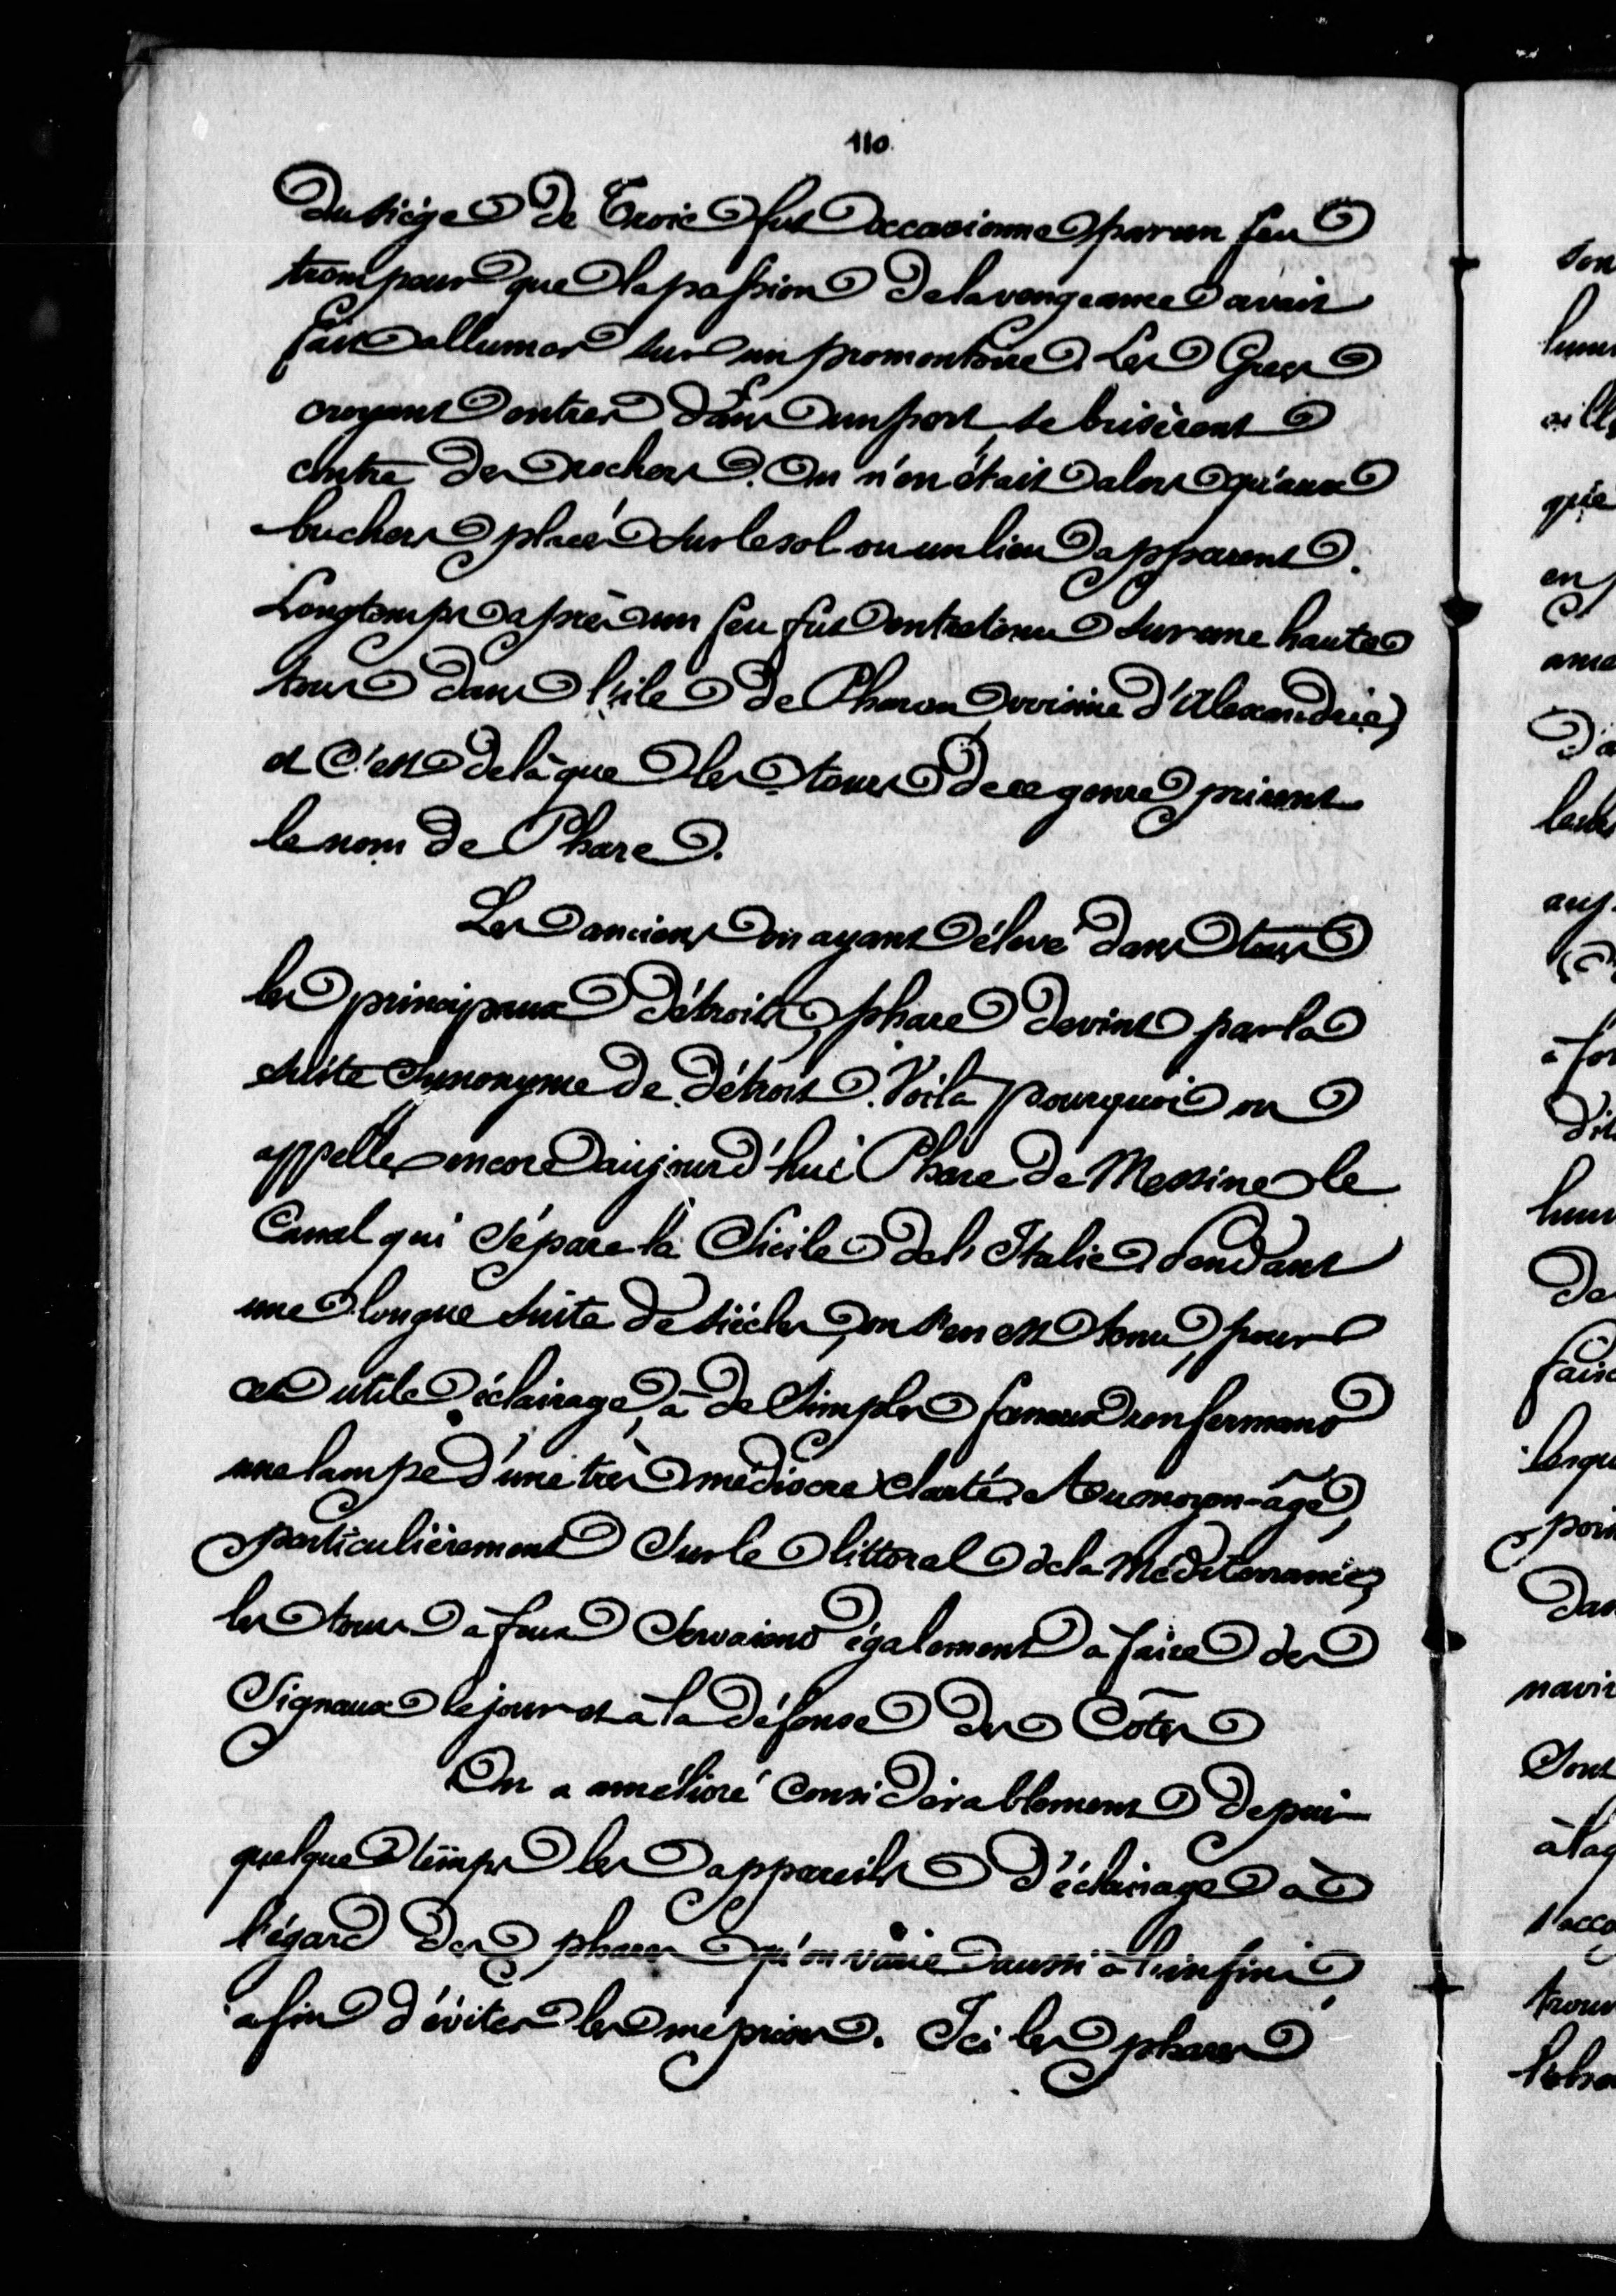 110.
du siège de Troie fut occasionné par un feu
trompeur que la passion de la vengeance avait
fait allumer sur un promontoire. Les Grecs
croyant entrer dans un port, se brisèrent
contre des rochers. On n'en était alors qu'aux
buchers placés sur le sol ou un lieu apparent.
Longtemps après un feu fut entretenu sur une haute
tour dans l'île de Pharon, voisine d'Alexandrie,
et C'est delà que les tours de ce genre prirent
le nom de Phare.
Les anciens en ayant élevé dans tous
les principaux détroits, phare devint par la
suite Synonyme de détroit. Voilà pourquoi on
appelle encore aujourd'hui Phare de Messine le
Canal qui Sépare la Sicile de l'Italie. Pendant
une longue Suite de siècles, on s'en est tenu, pour
cet utile éclairage, à de Simples fanaux renfermant
une lampe d'une très médiocre clarté. Au moyen-âge,
particulièrement Sur le littoral de la Méditerranée,
les tours à feux Servaient également à faire des
Signaux le jour et à la défense des Côtes
On a amélioré Considérablement depuis
quelque temps les appareils d'éclairage à
l'égard des phares qu'on varie aussi à l'infini,
afin d'éviter les méprises. Ici les phares